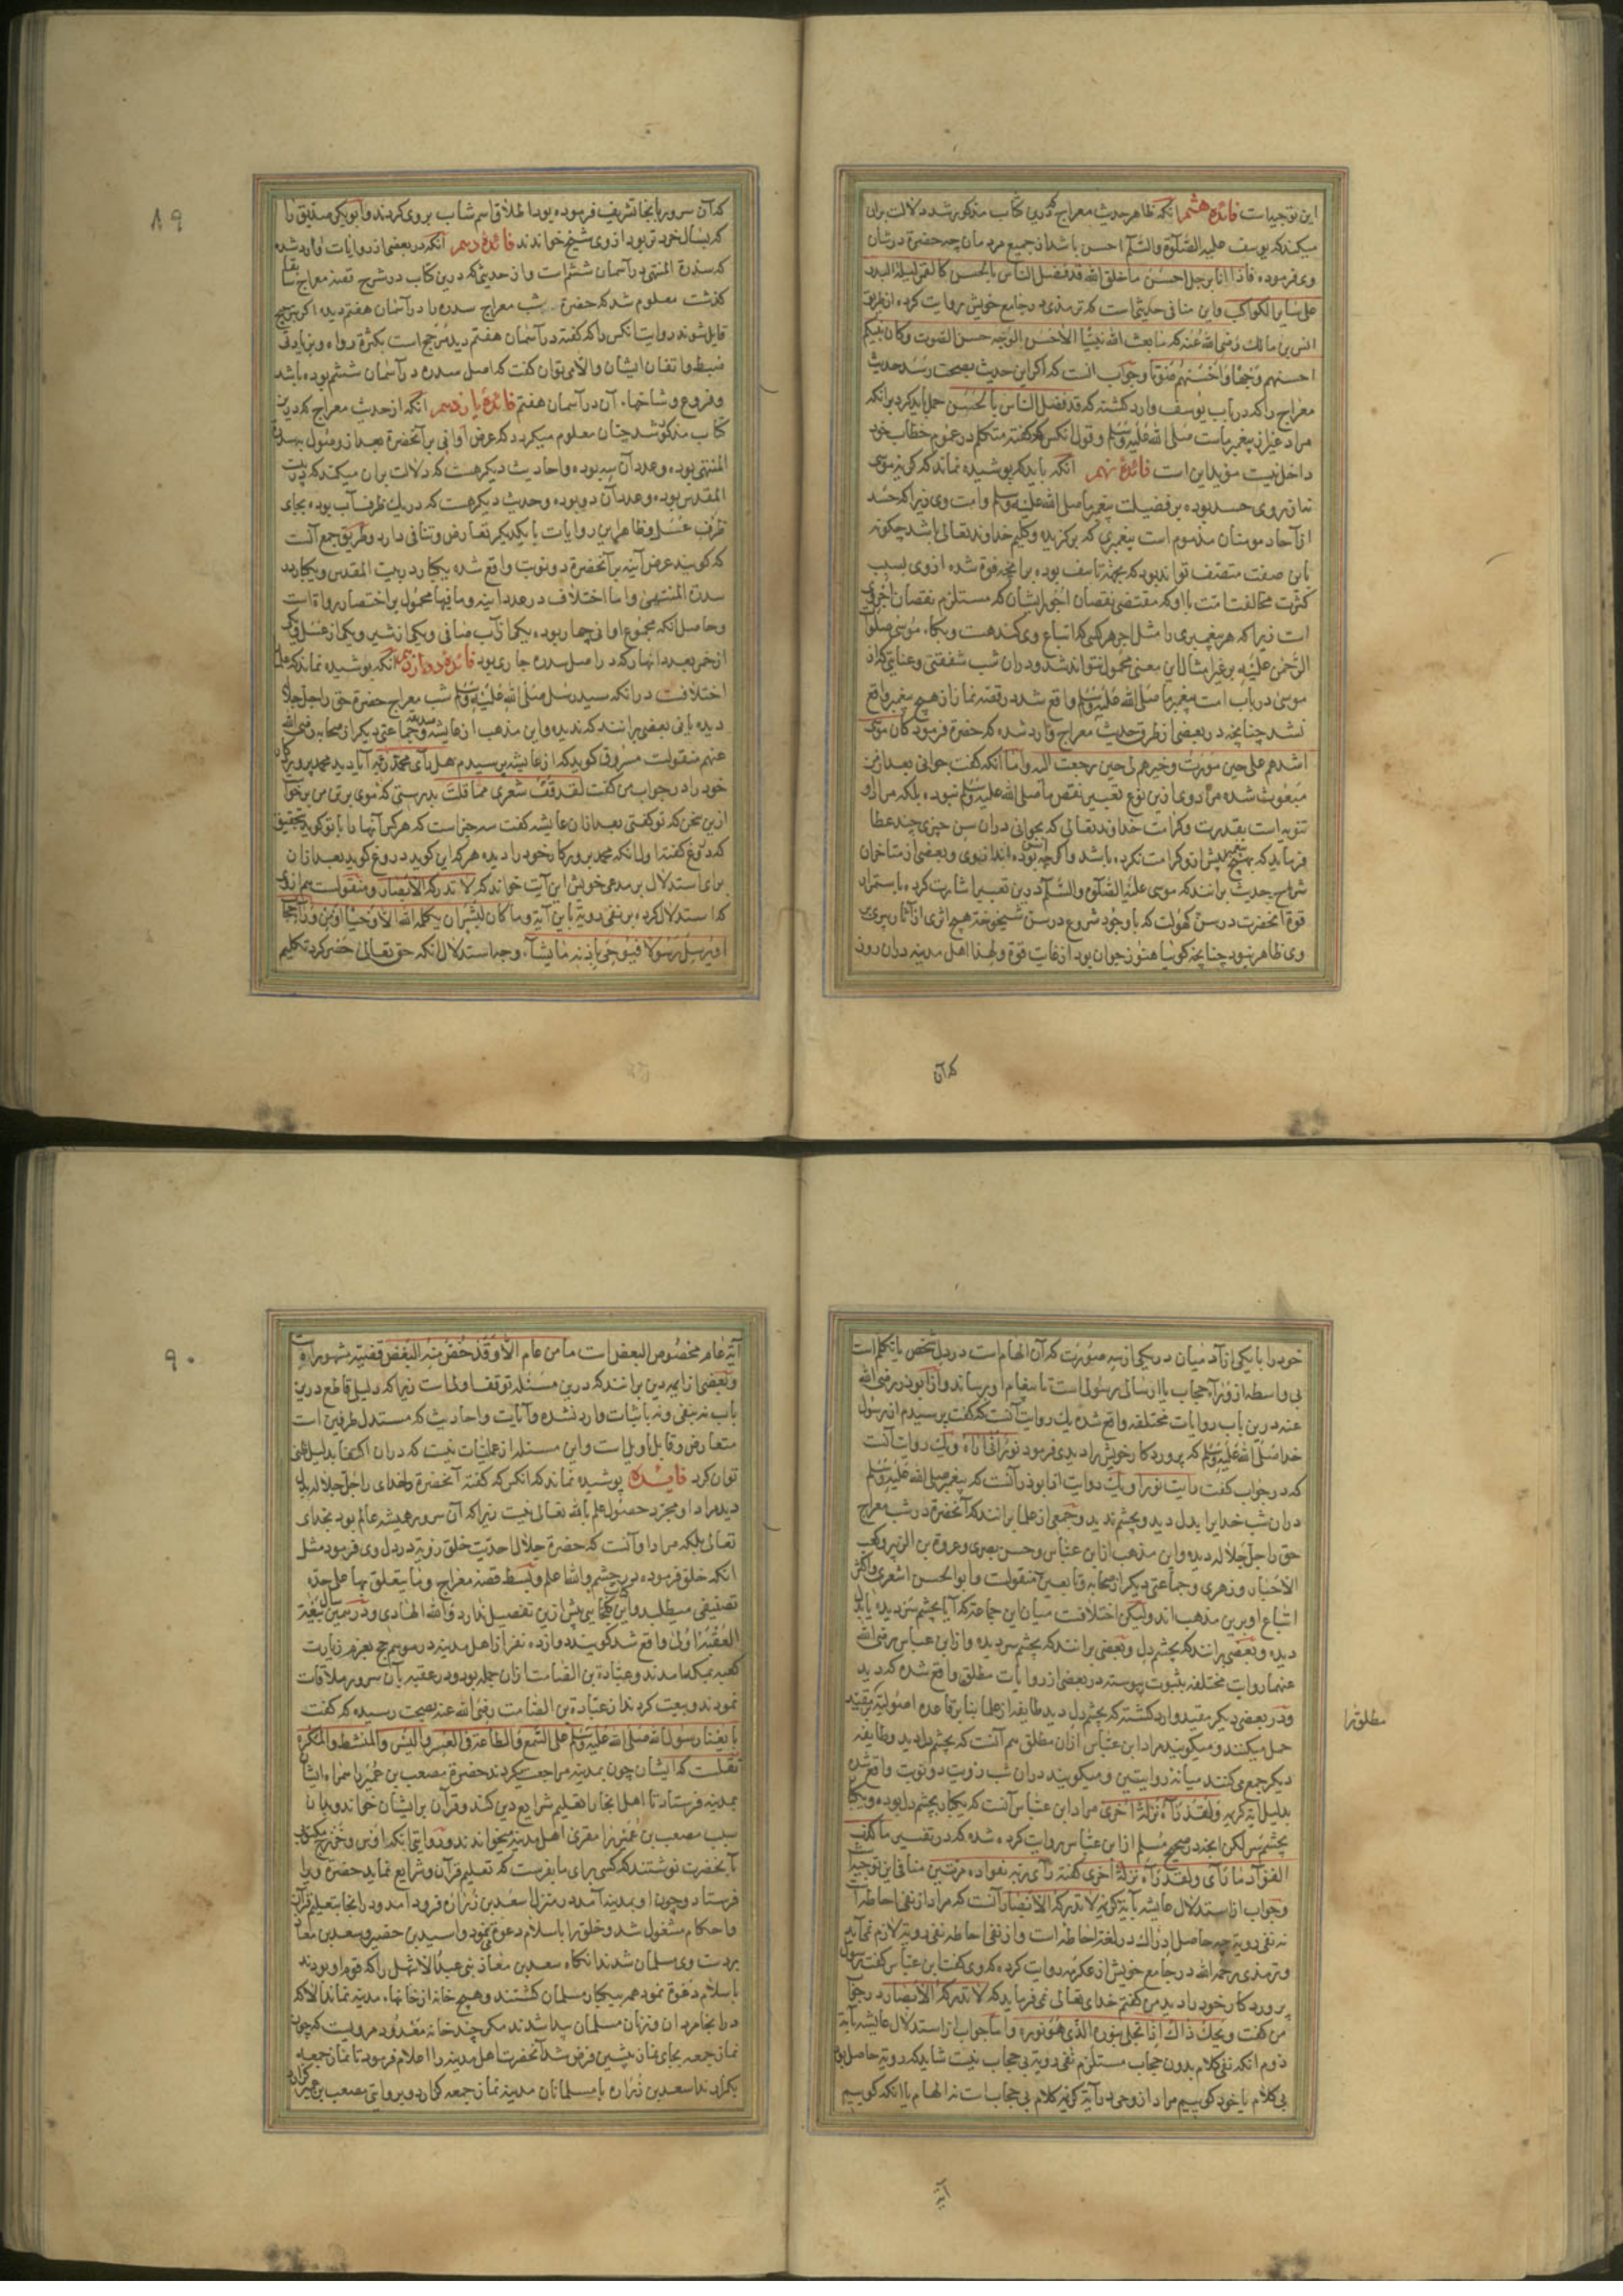 این توجیه است فائدهٔ هشتم آنکه ظاهر حدیث معراج که درین کتاب مذکور شد دلالت بران
میکند که یوسف علیه الصلوة والسلم احسن باشد از جمیع مردمان چه حضرة در شان
وی فرموده فاذا انا برجل احسن ما خلق الله قد فضل الناس بالحسن کالقمر لیلة البدر
علی سایر الکواکب واین منافی حدیثی است که ترمذی در جامع خویش روایت کرده از طریق
انس بن مالک رضی الله عنه که ما بعث الله نبیّا الا حسن الوجه حسن الصوت وکان نبیکم
احسنهم وجها واحسنهم صوتا وجواب انست که اگر این حدیث بصحت رسد حدیث
معراج را که در باب یوسف وارد گشته که قد فضل الناس بالحسن حمل باید کرد بر انکه
مراد غیر از پیغمبر ماست صلی الله علیه وسلم وقول انکس که گفته متکلم در عموم خطاب خود
داخل نیست مؤید این است فائدهٔ نهم آنکه باید که پوشیده نماند که گریهٔ موسی
نه از روی حسد بوده بر فضیلت پیغمبر ما صلی الله علیه وسلم وامت وی زیرا که حسد
از آحاد مومنان مذموم است پیغمبری که برگزیده وکلیم خداوند تعالی باشد چگونه
باین صفت متصف تواند بود که بجهة تاسف بوده بر آنچه فوة شده از وی بسبب
کثرت مخالفت امت با او که مقتضی نقصان اجور ایشان که مستلزم نقصان اجر وی
است زیرا که هر پیغمبری را مثل اجر هر کسی که اتباع وی کند هست وبکاء موسی صلوات
الرحمن علیه بر غیر امثال این معنی محمول نتواند شد ودران شب شفقتی وعنایتی که از
موسی در باب امت پیغمبر ما صلی الله علیه وسلم واقع شد در قصه نماز از هیچ پیغمبر واقع
نشد چنانچه در بعضی از طرق حدیث معراج وارد شده که حضرة فرمود کان موسی
اشدهم علی حین مررت وخیرهم لی حین رجعت الیه واما آنکه گفت جوانی بعد از من
مبعوث شده مراد وی ازین نوع تعبیر نقص ما صلی الله علیه وسلم نبوده بلکه مراد او
تنویه است بقدرت وکرامت خداوند تعالی که بجوانی دران سن چیزی چند عطا
فرماید که بهیچ پیغمبر پیش از تو کرامت نکرده باشد واگرچه اسن بوده اند از وی وبعضی از متاخران
شراح حدیث برانند که موسی علیه الصلوة والسلم درین تعبیر اشارت کرده باستمرار
قوة آنحضرت در سن کهولت که با وجود شروع در سن شیخوخة هیچ اثری از آثار پیری بر
وی ظاهر نبود چنانچه گوئیا هنوز جوان بود از غایت قوة ولهذا اهل مدینه دران روز
که آن
۸۹
که آن سرور بانجا تشریف فرموده بود اطلاق اسم شاب بر وی کردند وابوبکر صدیق را
که بسال خردتر بود از وی شیخ خواندند فائدهٔ دهم آنکه در بعضی از روایات وارد شده
که سدرة المنتهی در آسمان ششم است واز حدیثی که درین کتاب در شرح قصه معراج سابقا
گذشت معلوم شد که حضرة شب معراج سدره را در آسمان هفتم دیده اگر بترجیح
قایل شوند روایت انکس را که گفته در آسمان هفتم دید مرجح است بکثرة رواه وبزیادتی
ضبط واتقان ایشان والا می توان گفت که اصل سدره در آسمان ششم بوده باشد
وفروع وشاخهاء آن در آسمان هفتم فائدهٔ یازدهم آنکه از حدیث معراج که درین
کتاب مذکور شد چنان معلوم میگردد که عرض اوانی بر آنحضرة بعد از وصول بسدرة
المنتهی بوده وعدد آن سه بوده واحادیث دیگر هست که دلالت بران میکند که در بیت
المقدس بوده وعدد آن دو بوده وحدیث دیگر هست که در یک ظرف آب بوده بجای
ظرف عسل وظاهر این روایات با یکدیگر تعارض وتنافی دارد وطریق جمع آنست
که گویند عرض آنیه بر آنحضرة دو نوبت واقع شده یکبار در بیت المقدس ویکبار در
سدرة المنتهی واما اختلاف در عدد آنیه وما فیها محمول بر اختصار رواة است
وحاصل آنکه مجموع اوانی چهار بوده یکی از آب صافی ویکی از شیر ویکی از عسل ویکی
از خمر بعدد انهار که در اصل سدره جاری بود فائدهٔ دوازدهم آنکه پوشیده نماند که علما را
اختلافست در انکه سید رسل صلی الله علیه وسلم شب معراج حضرة حق را جل جلاله
دیده یا نی بعضی برانند که ندیده واین مذهب از عایشه صدیقه وجماعتی دیگر از صحابه رضی الله
عنهم منقولست مسروق گوید که از عایشه پرسیدم هل رأی محمد ربه آیا دید محمد پروردگار
خود را در جواب من گفت لقد قف شعری مما قلت بدرستی که موی بر تن من برخواست
ازین سخن که تو گفتی بعد از ان عایشه گفت سه چیز است که هر کس آنها را با تو گوید بتحقیق
که دروغ گفته اول آنکه محمد پروردگار خود را دیده هر که این گوید دروغ گوید بعد از ان
برای استدلال بر مدعی خویش این آیت خواند که لا تدرکه الابصار ومنقولست هم از وی
که استدلال کرده بر نفی رویة باین آیة وما کان لبشر ان یکلمه الله الا وحیا او من وراء حجاب
او یرسل رسولا فیوحی باذنه ما یشاء وجه استدلال آنکه حق تعالی حصر کرد تکلیم
خود را با یکی از آدمیان در یکی از سه صورت که آن الهام است در دل شخص یا تکلم است
بی واسطه از وراء حجاب یا ارسال رسولی است تا پیغام او برساند واز ابوذر رضی الله
عنه درین باب روایات مختلفه واقع شده یک روایت آنست که گفت پرسیدم از رسول
خدا صلی الله علیه وسلم که پروردگار خویش را دیدی فرمود نور انی اراه ویک روایت آنست
که در جواب گفت رایت نورا ویک روایت از ابوذر آنست که پیغمبر صلی الله علیه وسلم
دران شب خدایرا بدل دید وبچشم ندید وجمعی از علما برانند که آنحضرة در شب معراج
حق را جل جلاله دیده واین مذهب از ابن عباس وحسن بصری وعروة بن الزبیر وکعب
الاحبار وزهری وجماعتی دیگر از صحابه وتابعین منقولست وابو الحسن اشعری واکثر
اتباع او برین مذهب اند ولیکن اختلافست میان این جماعة که آیا بچشم سر دیده یا بدل
دیده وبعضی برانند که بچشم دل وبعضی برانند که بچشم سر دیده واز ابن عباس رضی الله
عنهما روایت مختلفه بثبوت پیوسته در بعضی از روایات مطلق واقع شده که دید
ودر بعضی دیگر مقید وارد گشته که بچشم دل دید طایفه از علما بنا بر قاعده اصولیه بر مقید
مطلق را
حمل میکنند ومیگویند مراد ابن عباس ازان مطلق هم آنست که بچشم دل دید وطایفه
دیگر جمع می کنند میانهٔ روایتین ومیگویند دران شب رؤیت دو نوبت واقع شده
بدلیل آیه کریمه ولقد رآه نزلة اخری مراد ابن عباس آنست که یکبار بچشم دل بوده ویکبار
بچشم سر لکن انچه در صحیح مسلم از ابن عباس روایت کرده شده که در تفسیر ما کذب
الفؤاد ما رأی ولقد رآه نزلة اخری گفته رأی ربه بفؤاده مرتین منافی این توجیه است
وجواب از استدلال عایشه بآیه کریمه لا تدرکه الابصار آنست که مراد از نفی احاطه است
نه نفی رویة چه حاصل ادراک در لغة احاطه است واز نفی احاطه نفی رویة لازم نمی آید
وترمذی رحمه الله در جامع خویش از عکرمه روایت کرده که وی گفت ابن عباس گفت رسول
پروردکار خود را دید من گفتم خدای تعالی نمی فرماید که لا تدرکه الابصار در جواب
من گفت ویحک ذاک اذا تجلی بنوره الذی هو نوره واما جواب از استدلال عایشه بآیة
دوم آنکه نفی کلام بدون حجاب مستلزم نفی رویة بی حجاب نیست شاید که رویة حاصل بود
بی کلام یا خود گوییم مراد از وحی در آیه کریمه کلام بی حجاب است نه الهام یا انکه گوییم
آیة
۹۰
آیة عام مخصوص البعض است ما من عام الا وقد خص منه البعض قضیه مشهوره است
وبعضی از ایمه دین برانند که درین مسئله توقف اولی است زیرا که دلیل قاطع درین
باب نه بنفی ونه باثبات وارد نشده وآیات واحادیث که مستدل طرفین است
متعارض وقابل تاویل است واین مسئله از عملیات نیست که دران اکتفا بدلیل ظنی
توان کرد فایده پوشیده نماند که انکس که گفته آنحضرة خدای را جل جلاله بدل
دید مراد او مجرد حصول علم بالله تعالی نیست زیرا که آن سرور همیشه عالم بود بخدای
تعالی بلکه مراد او آنست که حضرة جلال احدیت خلق رؤیة در دل وی فرمود مثل
انکه خلق فرموده در چشم والله اعلم وبسط قصه معراج وما یتعلق بها علی حده
تصنیفی میطلبد واین کتاب بیش ازین تفصیل ندارد والله الهادی ودر همین سال بیعة
العقبه اولی واقع شد گویند دوازده نفر از اهل مدینه در موسم حج بعزم زیارت
کعبه بمکه آمدند وعبادة بن الصامت از ان جمله بود ودر عقبه بآن سرور ملاقات
نمودند وبیعت کردند از عبادة بن الصامت رضی الله عنه بصحت رسیده که گفت
بایعنا رسول الله صلی الله علیه وسلم علی السمع والطاعة فی العسر والیسر والمنشط والمکره
نقلست که ایشان چون بمدینه مراجعت میکردند حضرة مصعب بن عمیر را همراه ایشان
بمدینه فرستاد تا اهل انجا را تعلیم شرایع دین کند وقرآن بر ایشان خواند وبدان
سبب مصعب بن عمیر را مقری اهل مدینه میخواندند ودر روایتی انکه اوس وخزرج مکتوب
بآنحضرت نوشتند که کسی برای ما بفرست که تعلیم قرآن وشرایع نماید حضرة ویرا
فرستاد وچون او بمدینه آمد در منزل اسعد بن زراره فرود آمد ودر انجا بتعلیم قرآن
واحکام مشغول شد وخلق را باسلام دعوة می نمود واسید بن حضیر وسعد بن معاذ
بر دست وی مسلمان شدند انگاه سعد بن معاذ بنی عبد الاشهل را که قوم او بودند
باسلام دعوة نمود همه بیکبار مسلمان گشتند وهیچ خانه از خانهاء مدینه نماند الا که
در انجا مردان وزنان مسلمان پیدا شدند مگر چند خانهٔ معدود مرویست که چون
نماز جمعه بجای نماز پیشین فرض شد آنحضرت اهل مدینه را اعلام فرمود تا نماز جمعه
بگزارند اسعد بن زراره با مسلمانان مدینه نماز جمعه گزارد وبروایتی مصعب بن عمیر گزارد